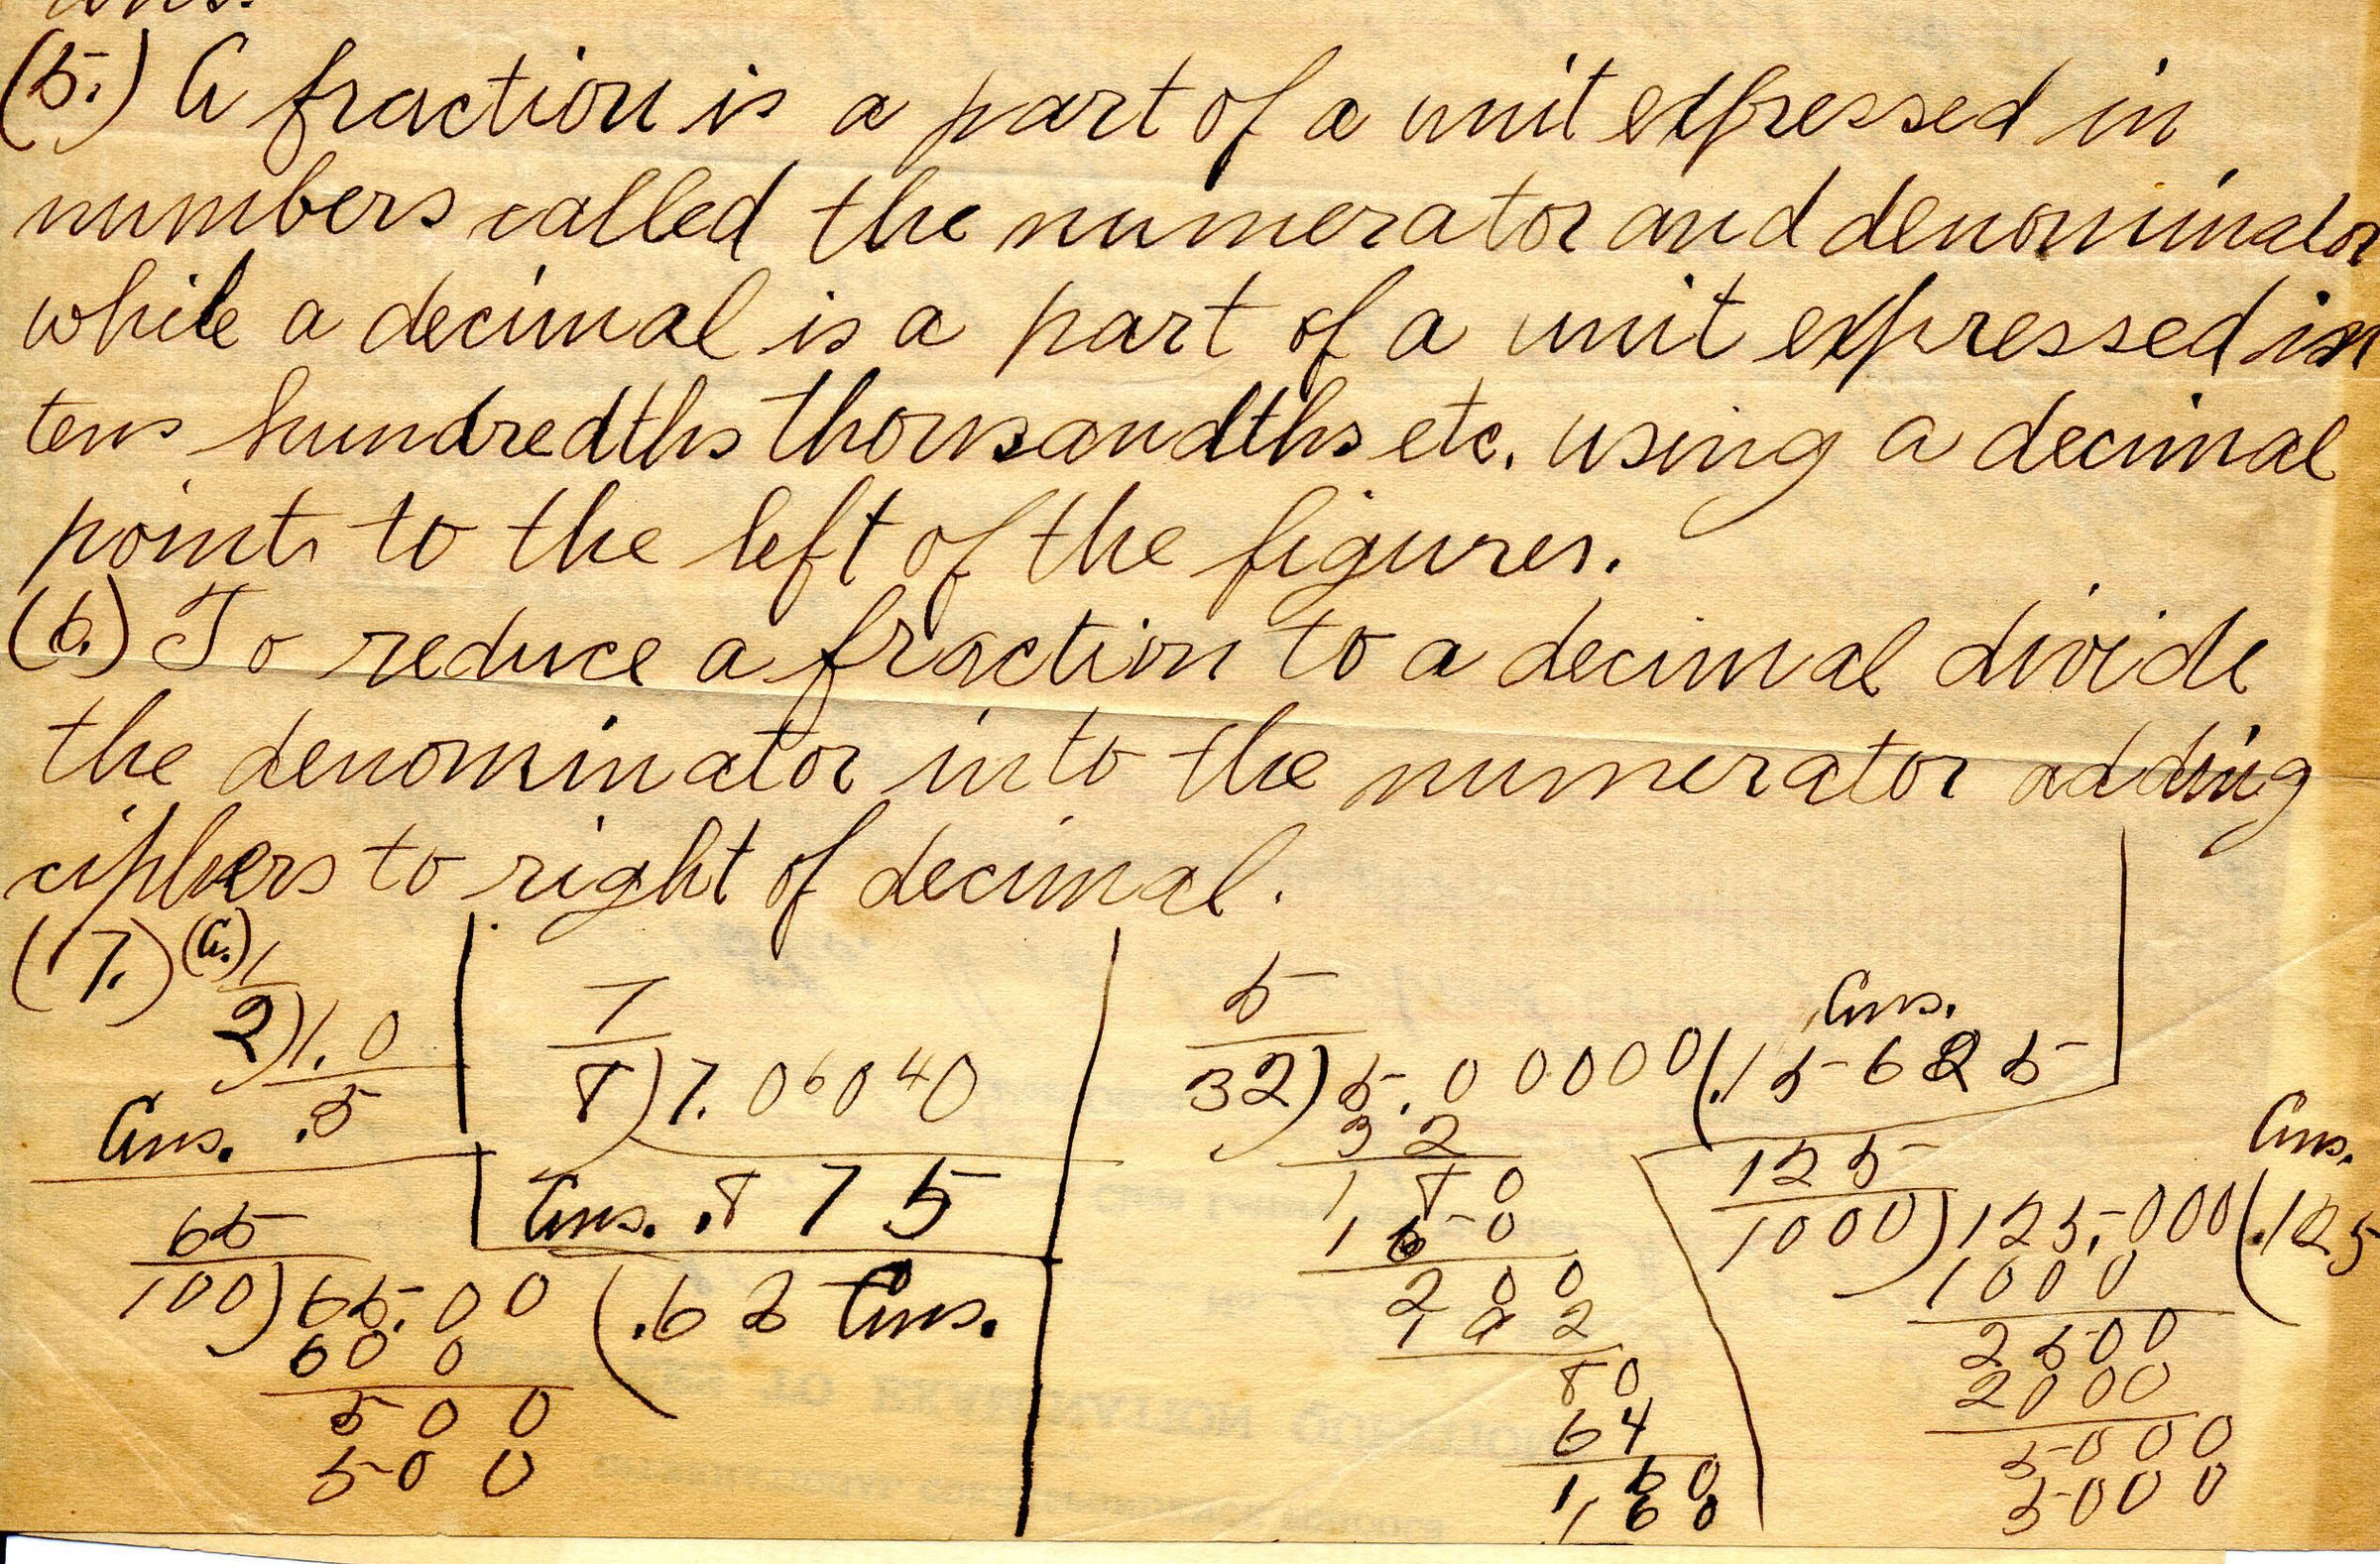 (5.) A fraction is a part of a unit expressed in
numbers called the numerator and denominator
while a decimal is a part of a unit expressed in
tens hundredths thousandths etc. using a decimal
point to the left of the figures.
(6.) To reduce a fraction to a decimal divide
the denominator into the numerator adding
ciphers to right of decimal.
(7.) (a.) 1
2)1.0
Ans. .5
7
8)7.06040
Ans. .875
5
32)5.00000(.15625 Ans.
32
180
160
200
192
80
64
160
160
65
100)65.00(.65 Ans.
600
500
500
125
1000)125.000(.125 Ans.
1000
2500
2000
5000
5000